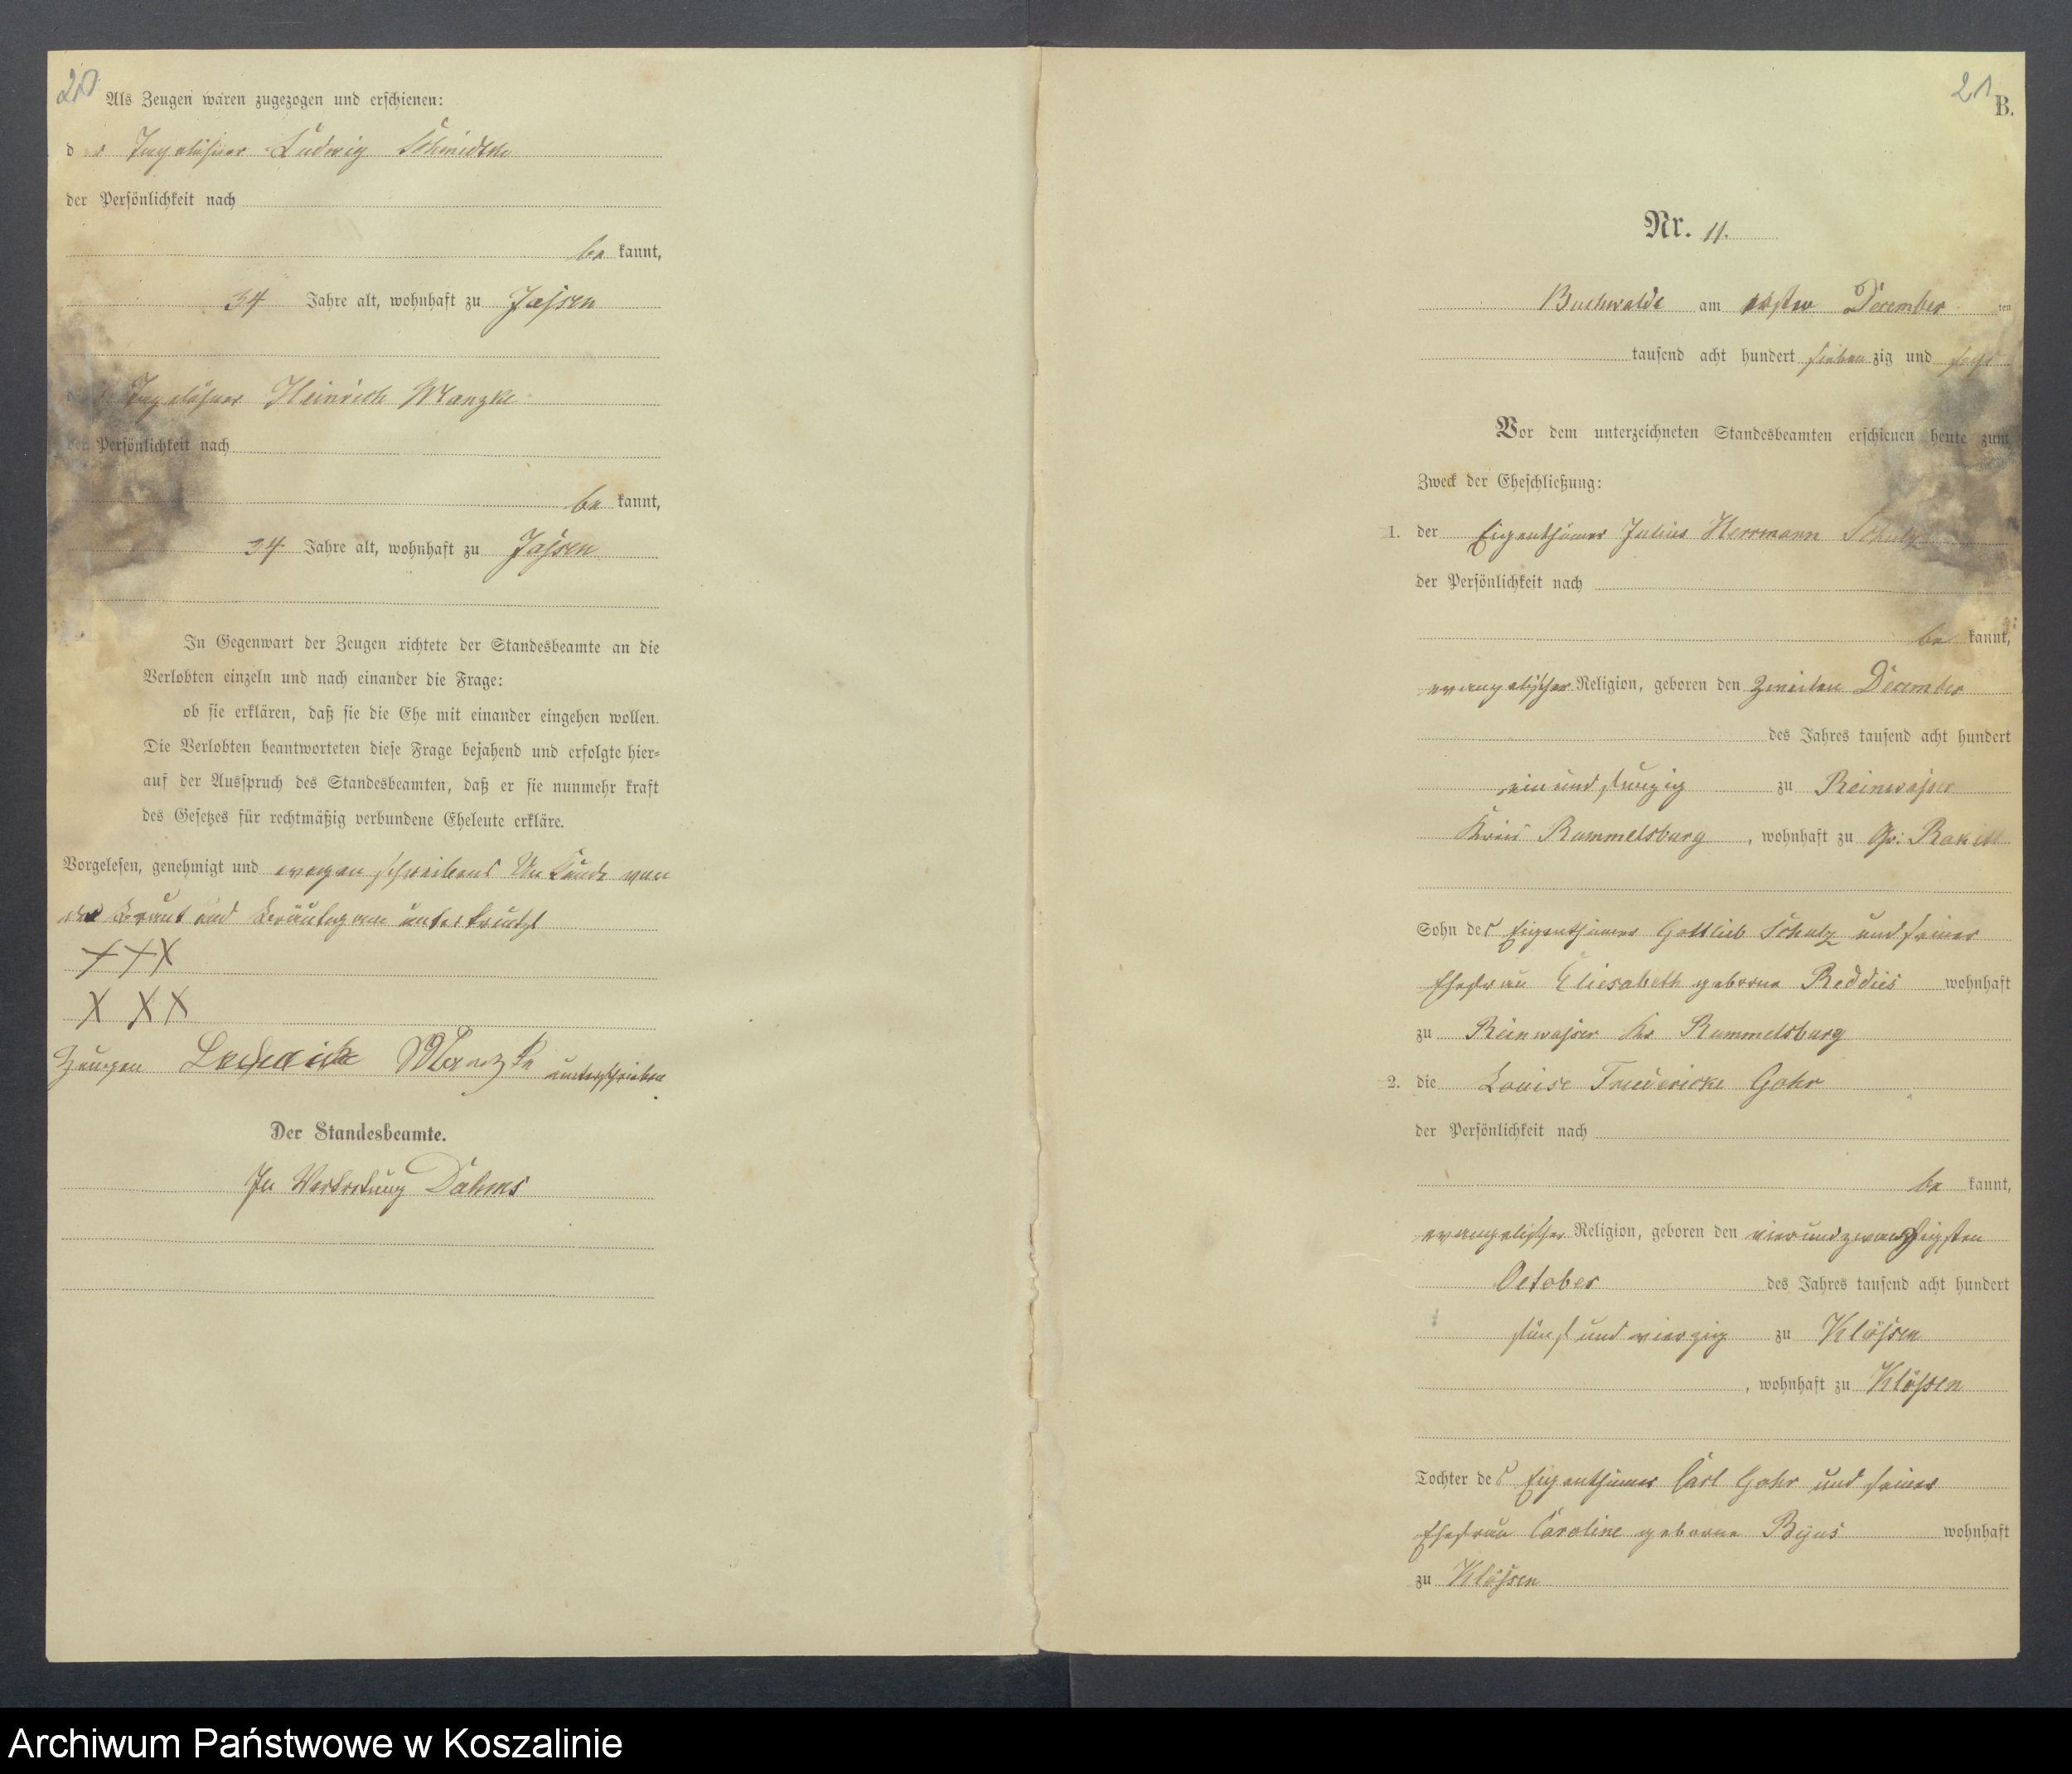 20
Als Zeugen waren zugezogen und erschienen:
d r Tagelöhner Ludwig Schmidtke
der Persönlichkeit nach
be kannt,
34 Jahre alt, wohnhaft zu Jassen
Tagelöhner Heinrich Manzke
der Persönlichkeit nach
be kannt,
34 Jahre alt, wohnhaft zu Jassen
In Gegenwart der Zeugen richtete der Standesbeamte an die
Verlobten einzeln und nach einander die Frage:
ob sie erklären, daß sie die Ehe mit einander eingehen wollen.
Die Verlobten beantworteten diese Frage bejahend und erfolgte hier-
auf der Ausspruch des Standesbeamten, daß er sie nunmehr kraft
des Gesetzes für rechtmäßig verbundene Eheleute erkläre.
Vorgelesen, genehmigt und wegen schreibens Unkunde von
der Braut und Bräutigam unterkreuzt
+++
XXX
Zeugen Manzke unterschrieben
Der Standesbeamte.
In Vertretung Dahms
21
B.
Nr. 11.
Buchwalde am ersten December ten
tausend acht hundert sieben zig und sechs
Vor dem unterzeichneten Standesbeamten erschienen heute zum
Zweck der Eheschließung:
1. der Eigenthümer Julius Herrmann Schulz
der Persönlichkeit nach
be kannt,
evangelischer Religion, geboren den zweiten December
des Jahres tausend acht hundert
zu Reinwasser
Kreis Rummelsburg, wohnhaft zu Gr: Rakitt
Sohn des Eigenthümer Gottlieb Schulz und seiner
Ehefrau Eliesabeth geborne Reddies wohnhaft
zu Reinwasser Krs Rummelsburg
2. die Louise Friedericke Gohr
der Persönlichkeit nach
be kannt,
evangelischer Religion, geboren den vierundzwanzigsten
October des Jahres tausend acht hundert
fünf und vierzig zu Klössen
, wohnhaft zu Klössen
Tochter des Eigenthümer Carl Gohr und seiner
Ehefrau Caroline geborne wohnhaft
zu Klössen
Archiwum Państwowe w Koszalinie